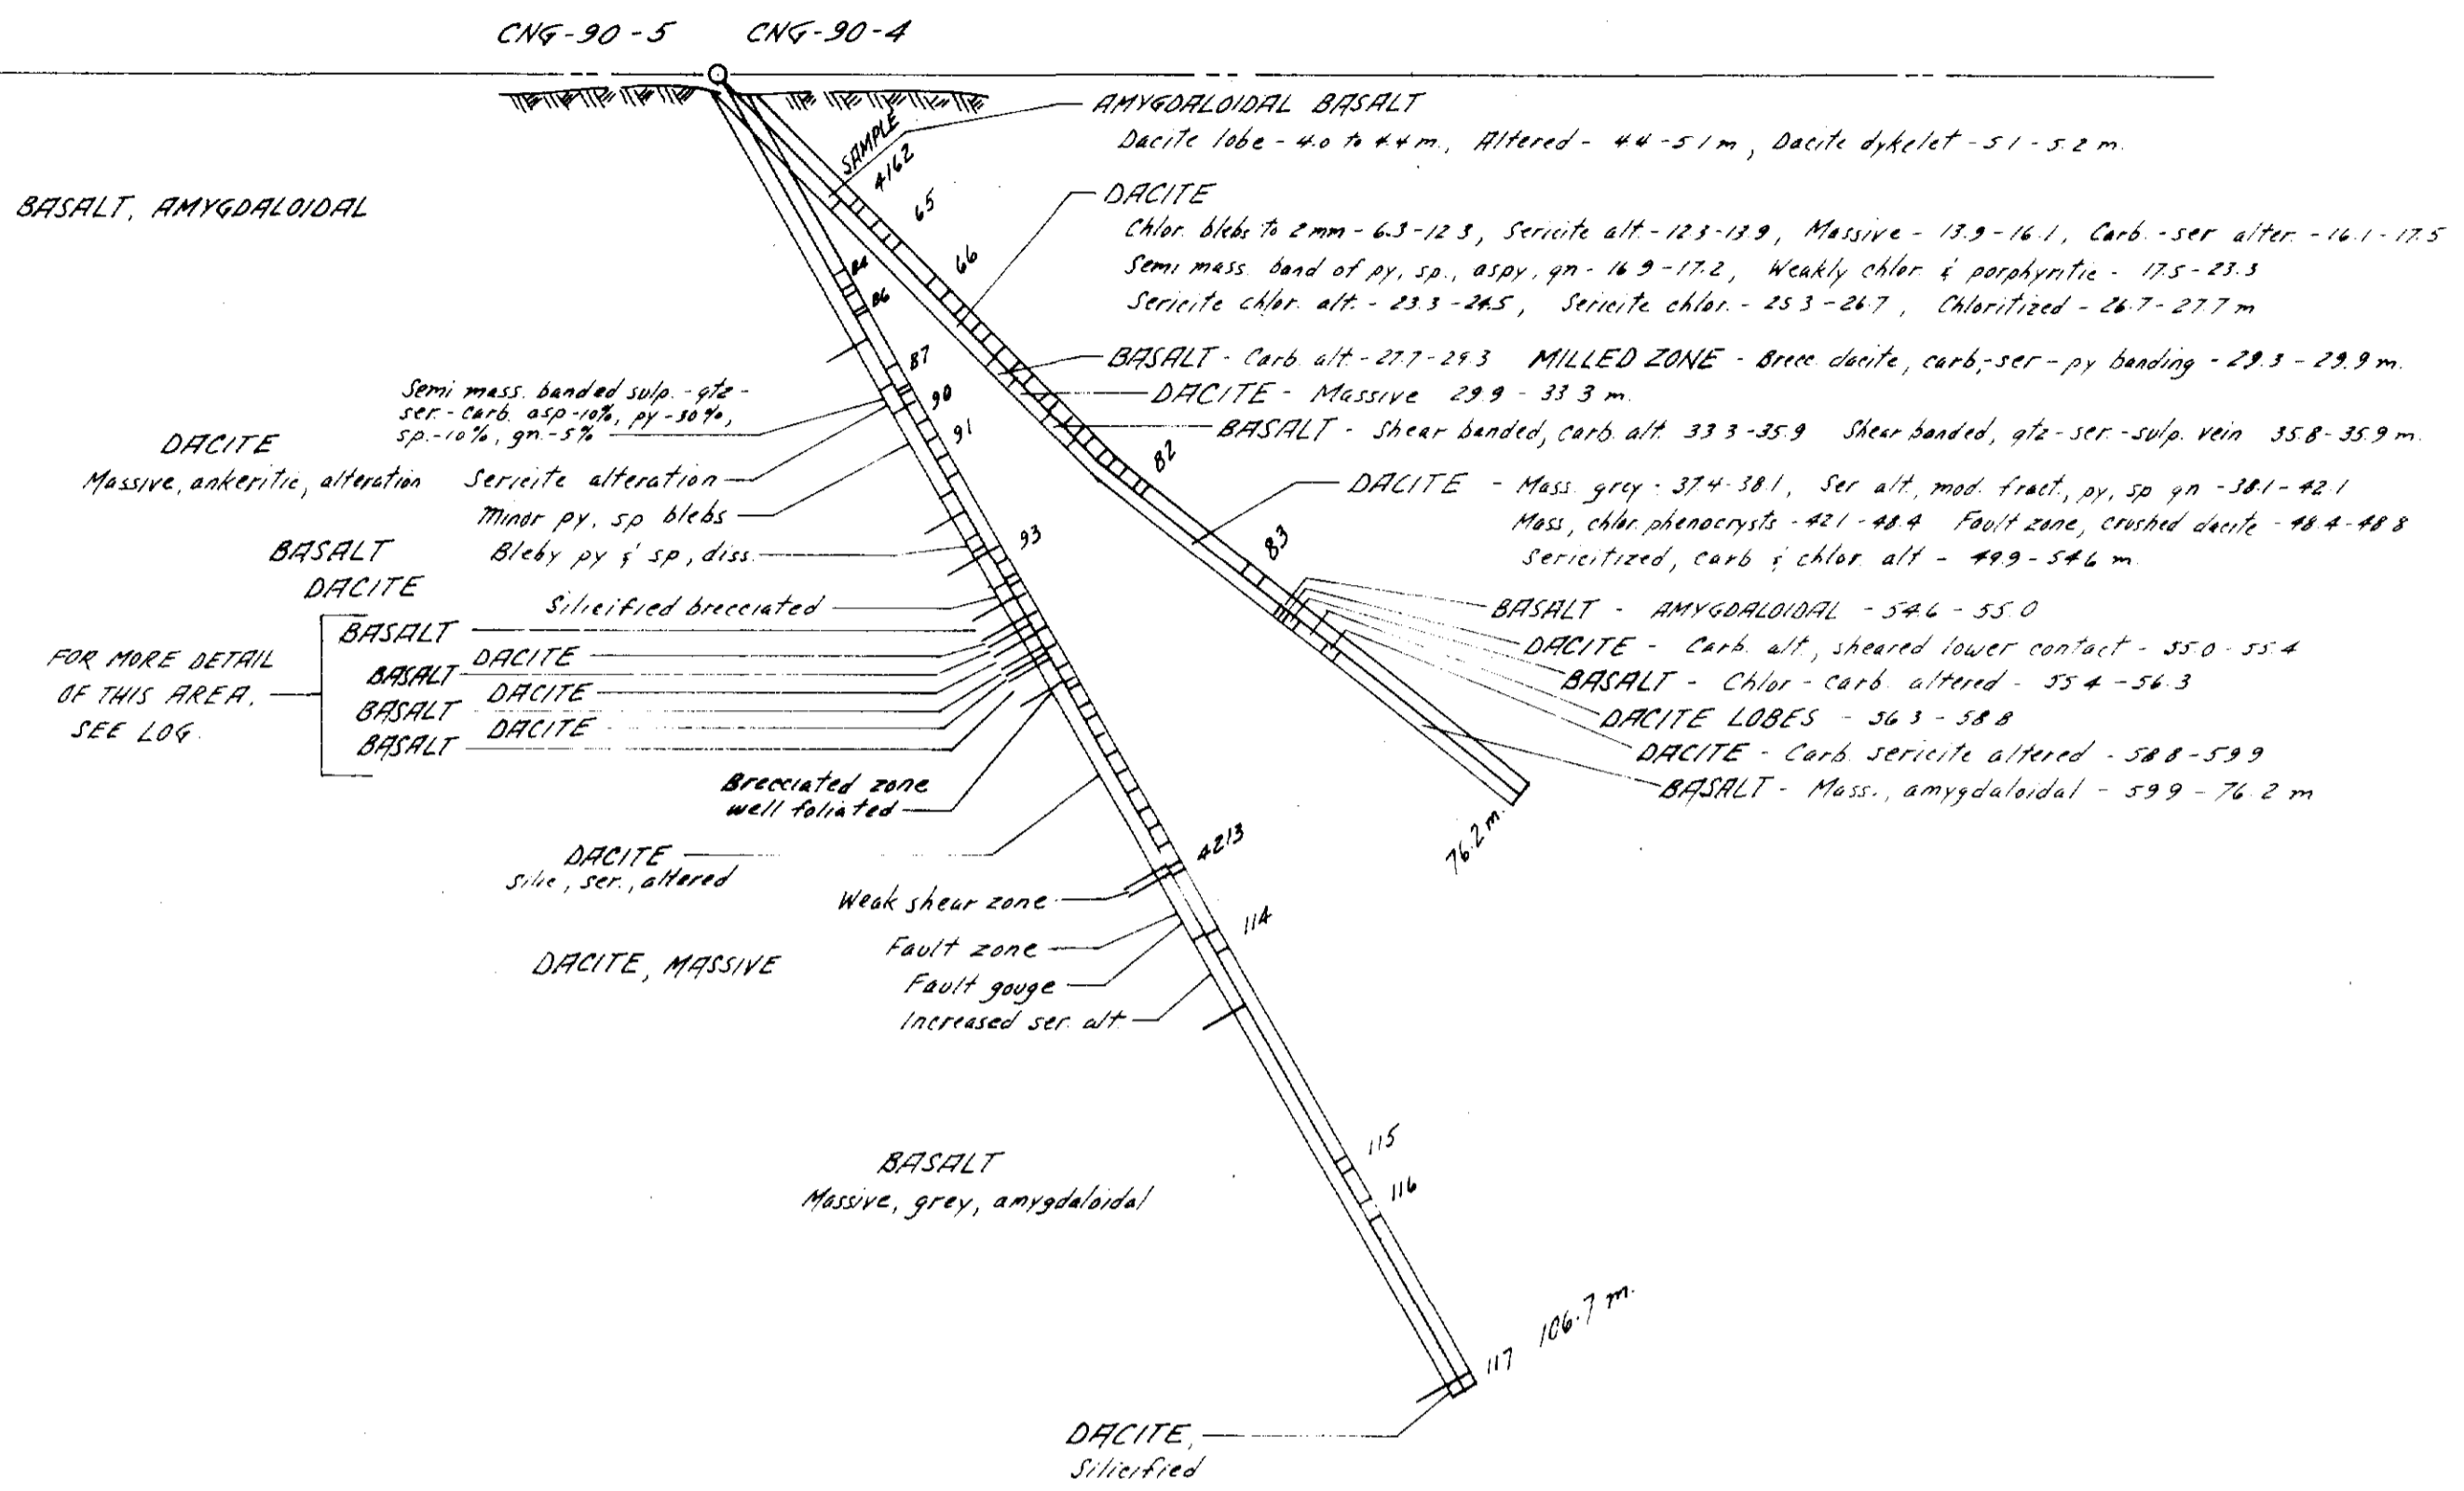 CNG-90-5 CNG-90-4
AMYGDALOIDAL BASALT
Dacite lobe - 4.0 to 4.4 m., Altered - 4.4 - 5.1 m, Dacite dykelet - 5.1 - 5.2 m.
SAMPLE
4162
65
66
DACITE
Chlor. blebs to 2 mm - 6.3-12.3, Sericite alt. - 12.3-13.9, Massive - 13.9-16.1, Carb.-ser alter. - 16.1-17.5
Semi mass. band of py, sp., aspy, gn - 16.9-17.2, Weakly chlor. & porphyritic - 17.5-23.3
Sericite chlor. alt. - 23.3-24.5, Sericite chlor. - 25.3-26.7, Chloritized - 26.7-27.7 m
BASALT - Carb. alt - 27.7-29.3 MILLED ZONE - Brecc. dacite, carb,-ser-py banding - 29.3-29.9 m.
DACITE - Massive 29.9 - 33.3 m.
BASALT - Shear banded, carb. alt. 33.3-35.9 Shear banded, qtz-ser.-sulp. vein 35.8-35.9 m.
82
DACITE - Mass. grey - 37.4-38.1, Ser alt., mod. fract., py, sp gn - 38.1-42.1
Mass, chlor. phenocrysts - 42.1-48.4 Fault zone, crushed dacite - 48.4-48.8
Sericitized, carb & chlor. alt - 49.9-54.6 m.
83
BASALT - AMYGDALOIDAL - 54.6 - 55.0
DACITE - Carb. alt, sheared lower contact - 55.0 - 55.4
BASALT - Chlor-carb. altered - 55.4 - 56.3
DACITE LOBES - 56.3 - 58.8
DACITE - Carb. sericite altered - 58.8-59.9
BASALT - Mass., amygdaloidal - 59.9 - 76.2 m
76.2 m.
BASALT, AMYGDALOIDAL
84
86
87
90
91
Semi mass. banded sulp.-qtz-
ser.-carb. asp-10%, py-30%,
sp.-10%, gn.-5%
DACITE
Massive, ankeritic, alteration
Sericite alteration
Minor py, sp blebs
BASALT
Bleby py & sp, diss.
93
DACITE
Silicified brecciated
FOR MORE DETAIL
OF THIS AREA,
SEE LOG.
BASALT
DACITE
BASALT
DACITE
BASALT
DACITE
BASALT
Brecciated zone
well foliated
DACITE
Silic, ser., altered
4213
Weak shear zone
114
Fault zone
DACITE, MASSIVE
Fault gouge
Increased ser. alt.
BASALT
Massive, grey, amygdaloidal
115
116
117
106.7 m.
DACITE,
Silicified